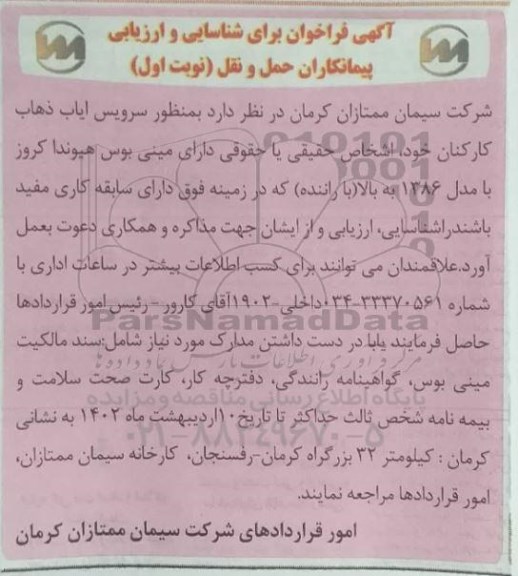 آگهی فراخوان برای شناسایی و ارزیابی
پیمانکاران حمل و نقل (نوبت اول)
شرکت سیمان ممتازان کرمان در نظر دارد بمنظور سرویس ایاب ذهاب
کارکنان خود، اشخاص حقیقی یا حقوقی دارای مینی بوس هیوندا کروز
با مدل ۱۳۸۶ به بالا(با راننده) که در زمینه فوق دارای سابقه کاری مفید
باشندراشناسایی، ارزیابی و از ایشان جهت مذاکره و همکاری دعوت بعمل
آورد.علاقمندان می توانند برای کسب اطلاعات بیشتر در ساعات اداری با
شماره ۳۳۳۷۰۵۶۱-۰۳۴داخلی-۱۹۰۲آقای کارور - رئیس امور قراردادها
حاصل فرمایند یابا در دست داشتن مدارک مورد نیاز شامل:سند مالکیت
مینی بوس، گواهینامه رانندگی، دفترچه کار، کارت صحت سلامت و
بیمه نامه شخص ثالث حداکثر تا تاریخ۱۰اردیبهشت ماه ۱۴۰۲ به نشانی
کرمان : کیلومتر ۳۲ بزرگراه کرمان-رفسنجان، کارخانه سیمان ممتازان،
امور قراردادها مراجعه نمایند.
امور قراردادهای شرکت سیمان ممتازان کرمان
ParsNamadData
پایگاه اطلاع رسانی مناقصه و مزایده
۰۲۱-۸۸۳۴۹۶۷۰-۵